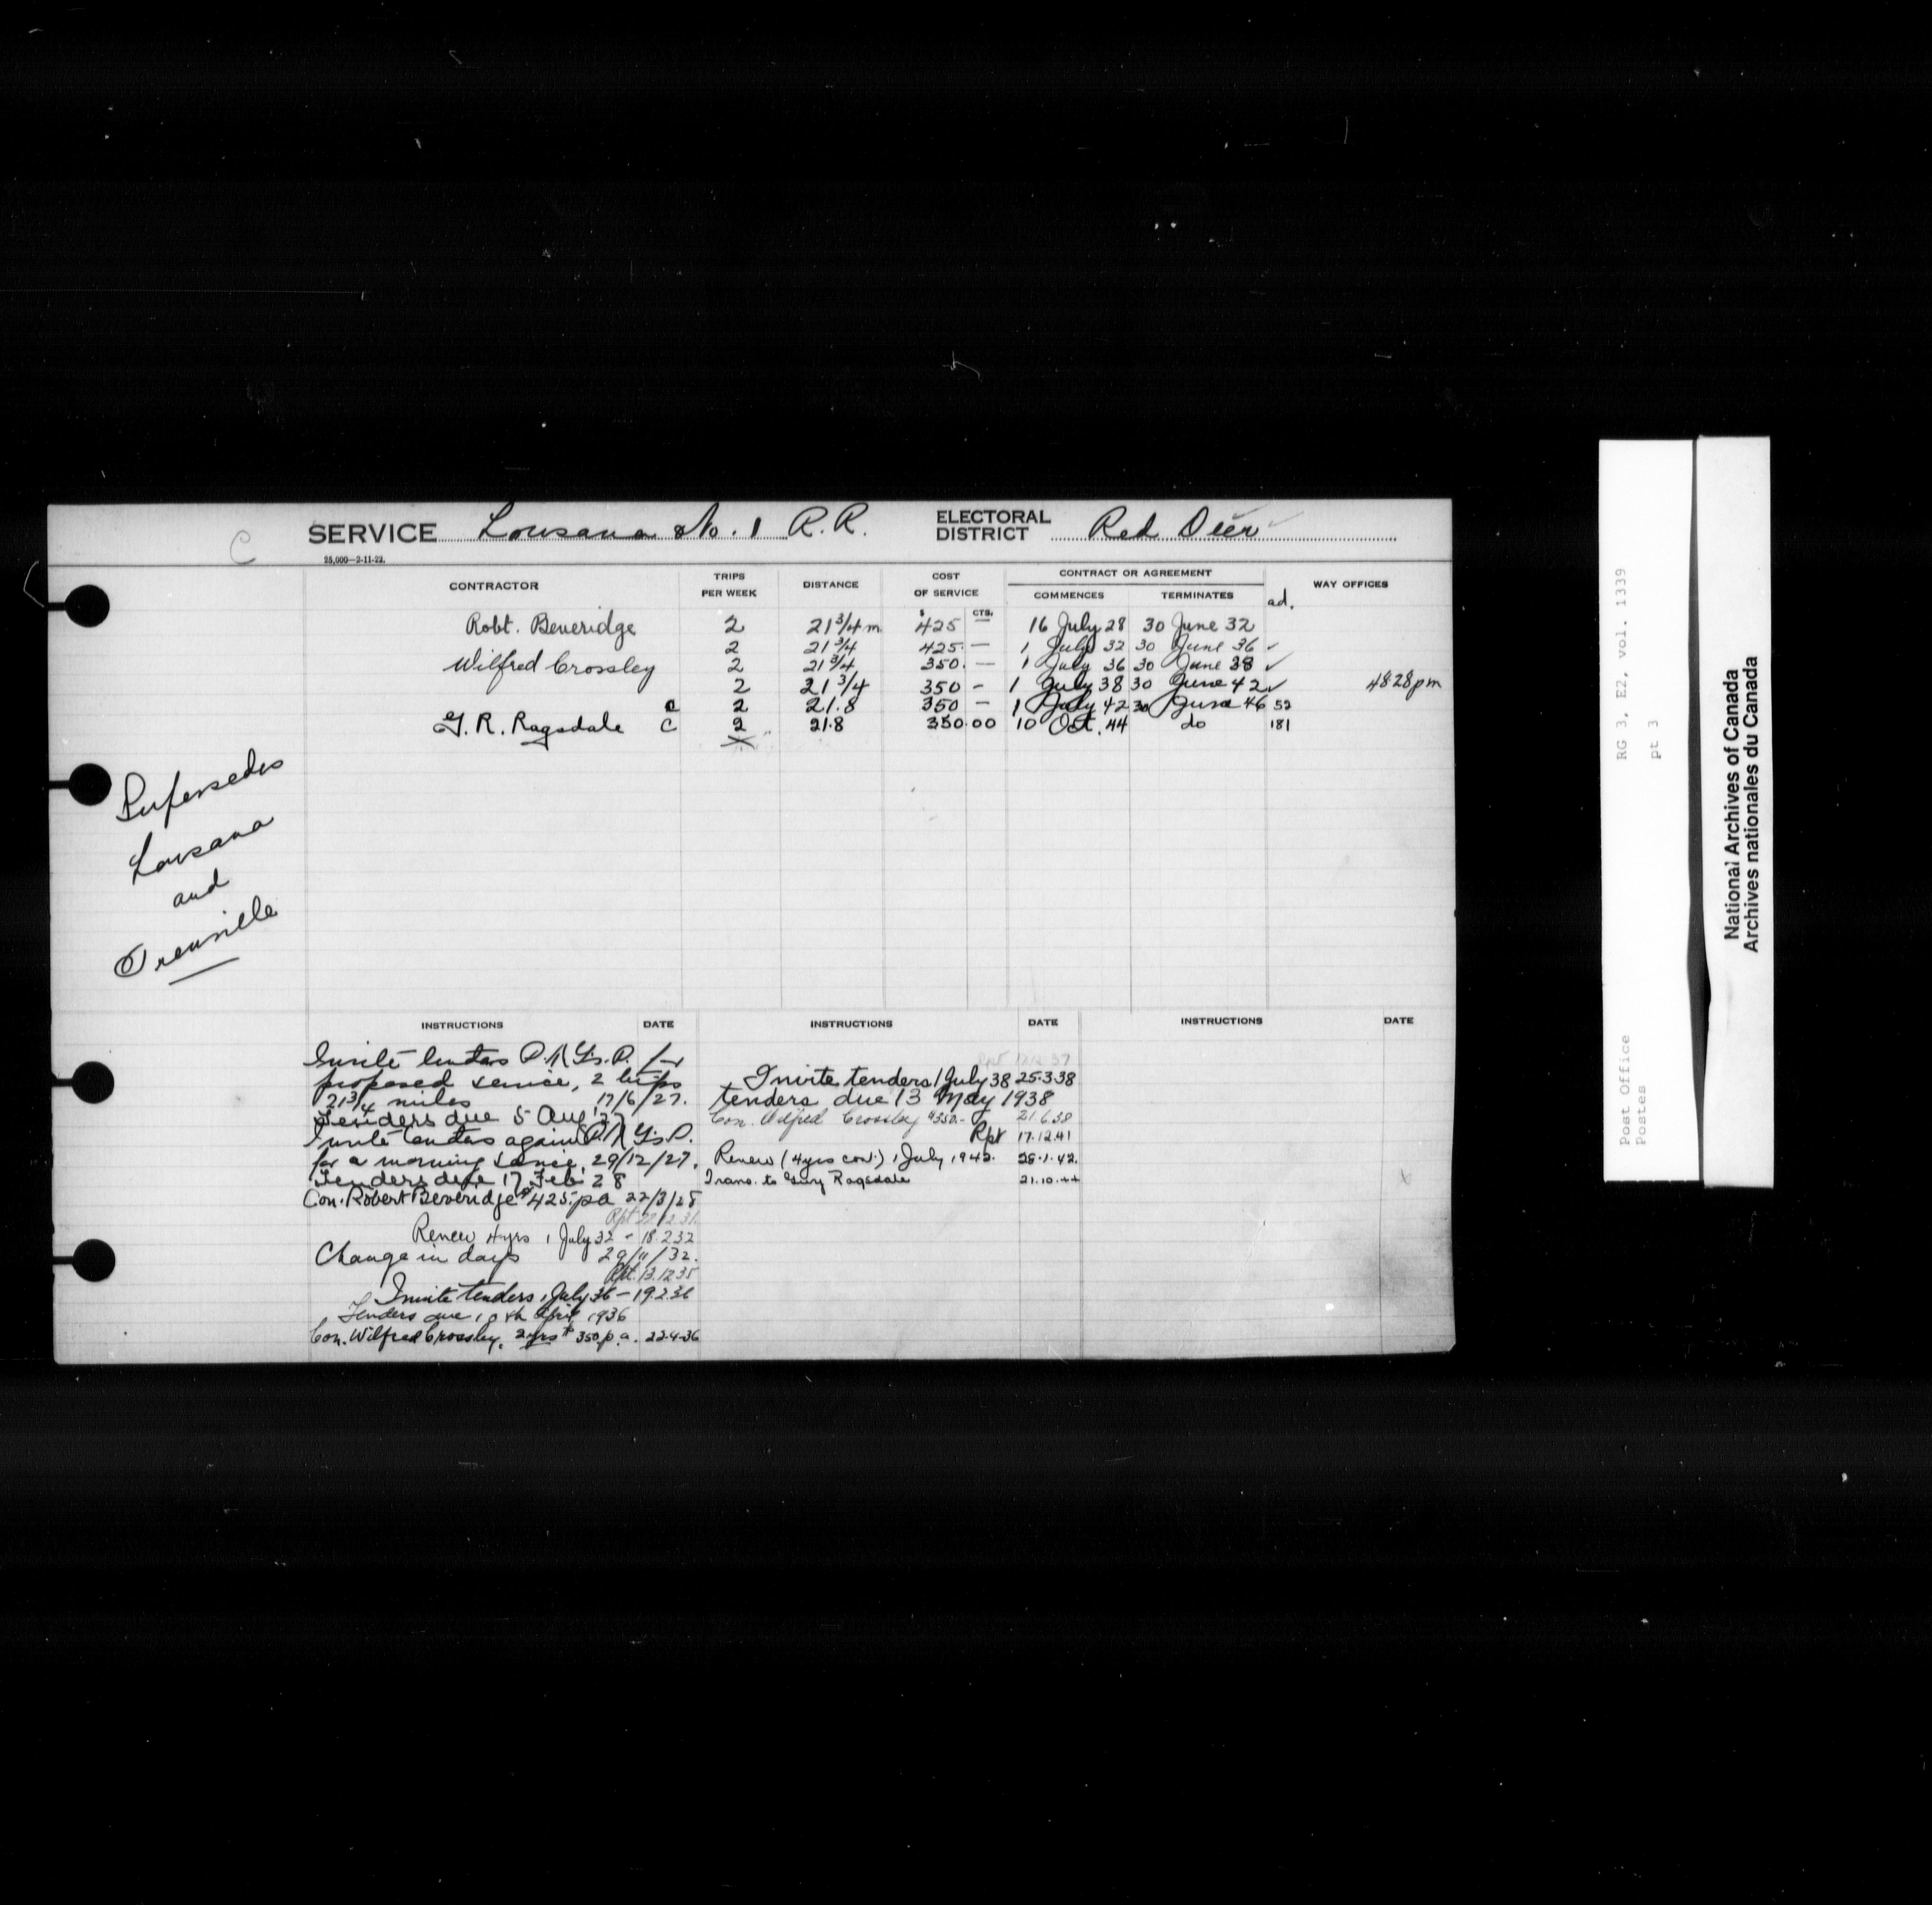 C
SERVICE Lousana No. 1 R.R. ELECTORAL DISTRICT Red Deer
25,000—2-11-22.
CONTRACTOR TRIPS PER WEEK DISTANCE COST OF SERVICE CONTRACT OR AGREEMENT COMMENCES TERMINATES ad. WAY OFFICES
$ CTS.
Robt. Beveridge 2 21 3/4 m 425 — 16 July 28 30 June 32
2 21 3/4 425 — 1 July 32 30 June 36 ✓
Wilfred Crossley 2 21 3/4 350. — 1 July 36 30 June 38 ✓
2 21 3/4 350 — 1 July 38 30 June 42 ✓ 4828pm
c 2 21.8 350 — 1 July 42 30 June 46 52
G. R. Ragsdale C 2 21.8 350.00 10 Oct. 44 do 181
Supersedes
Lousana
and
Trenville
INSTRUCTIONS DATE
Invite tenders for
proposed service, 2 trips
21 3/4 miles 17/6/27.
Tenders due 5 Aug 27
Invite tenders again
for a morning service, 29/12/27.
Tenders due 17 Feb 28
Con. Robert Beveridge $425 pa 22/3/28
Rpt
Renew 4 yrs 1 July 32 - 18.2.32
Change in days 29/11/32.
Rpt. 13.12.35
Invite tenders 1 July 36 - 19.2.36
Tenders due April 1936
Con. Wilfred Crossley. 2 yrs $350 p.a. 22-4-36
INSTRUCTIONS DATE
Rpt 37
Invite tenders 1 July 38 25.3.38
tenders due 13 May 1938
Con. Wilfred Crossley $350.- 21.6.38
Rpt 17.12.41
Renew (4 yrs con.) 1 July 1942. 28.1.42.
Trans. to Guy Ragsdale 21.10.44
INSTRUCTIONS DATE
x
RG 3, E2, vol. 1339
pt 3
Post Office
Postes
National Archives of Canada
Archives nationales du Canada